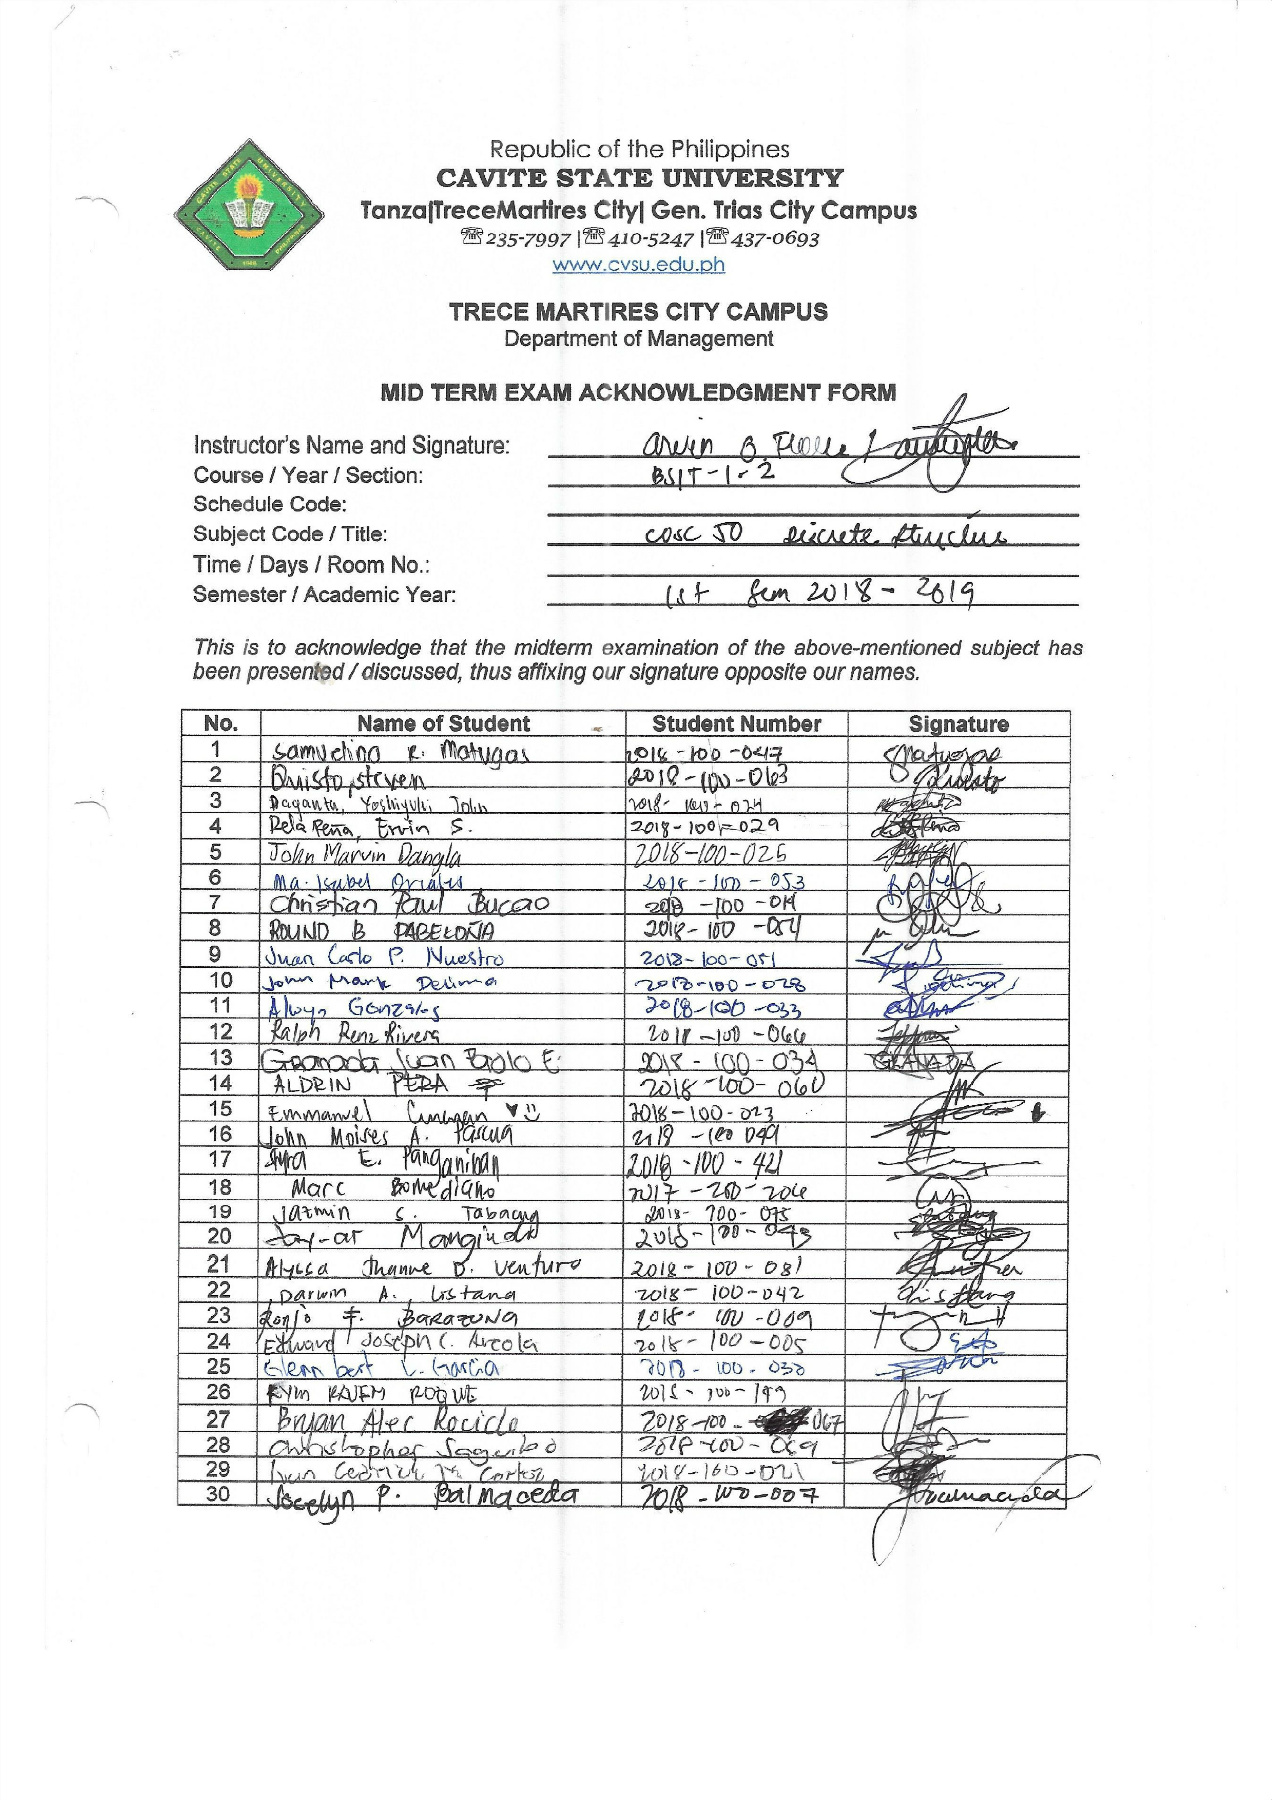 Republic of the Philippines
CAVITE STATE UNIVERSITY
Tanza|TreceMartires City| Gen. Trias City Campus
☏235-7997 |☏410-5247 |☏437-0693
www.cvsu.edu.ph
TRECE MARTIRES CITY CAMPUS
Department of Management
MID TERM EXAM ACKNOWLEDGMENT FORM
Instructor's Name and Signature: Arvin B.
Course / Year / Section: BSIT-1-2
Schedule Code:
Subject Code / Title: COSC 50 Discrete Structure
Time / Days / Room No.:
Semester / Academic Year: 1st Sem 2018-2019
This is to acknowledge that the midterm examination of the above-mentioned subject has
been presented / discussed, thus affixing our signature opposite our names.
No. Name of Student Student Number Signature
1 Samuelino R. Matugas 2018-100-047 Matugas
2 Quisto, Steven 2018-100-063
3 Daganta, Yoshiyuki John 2018-100-024
4 Dela Peña, Ervin S. 2018-100-029
5 John Marvin Dangla 2018-100-025
6 Ma. Isabel 2018-100-053
7 Christian Paul Bucao 2018-100-014
8 ROUND B PABELOÑA 2018-100-054
9 Juan Carlo P. Nuestro 2018-100-051
10 John Mark Delima 2018-100-028
11 Alwyn Gonzales 2018-100-033
12 Ralph Renz Rivera 2018-100-066
13 Granada Juan Paolo E. 2018-100-034 GRANADA
14 ALDRIN PERA 2018-100-060
15 Emmanuel 2018-100-023
16 John Moises A. Pascua 2018-100 049
17 E. Panganiban 2018-100-421
18 Marc Bomediano 2017-200-206
19 Jazmin S. Tabaong 2018-100-075
20 Jay-ar 2018-100-043
21 Alyssa Jhanne D. Venturo 2018-100-081
22 Darwin A. Listana 2018-100-042
23 Ronjo F. BARAZONA 2018-100-009
24 Edward Joseph C. Arcola 2018-100-005
25 Glenn bert L. Garcia 2018-100-030
26 KYM RAVEM ROQUE 2015-100-199
27 Bryan Alec Rociclo 2018-100- 067
28 Christopher Saguibo 2018-100-069
29 Cedrick Cortez 2018-100-021
30 Jocelyn P. Balmaceda 2018-100-007